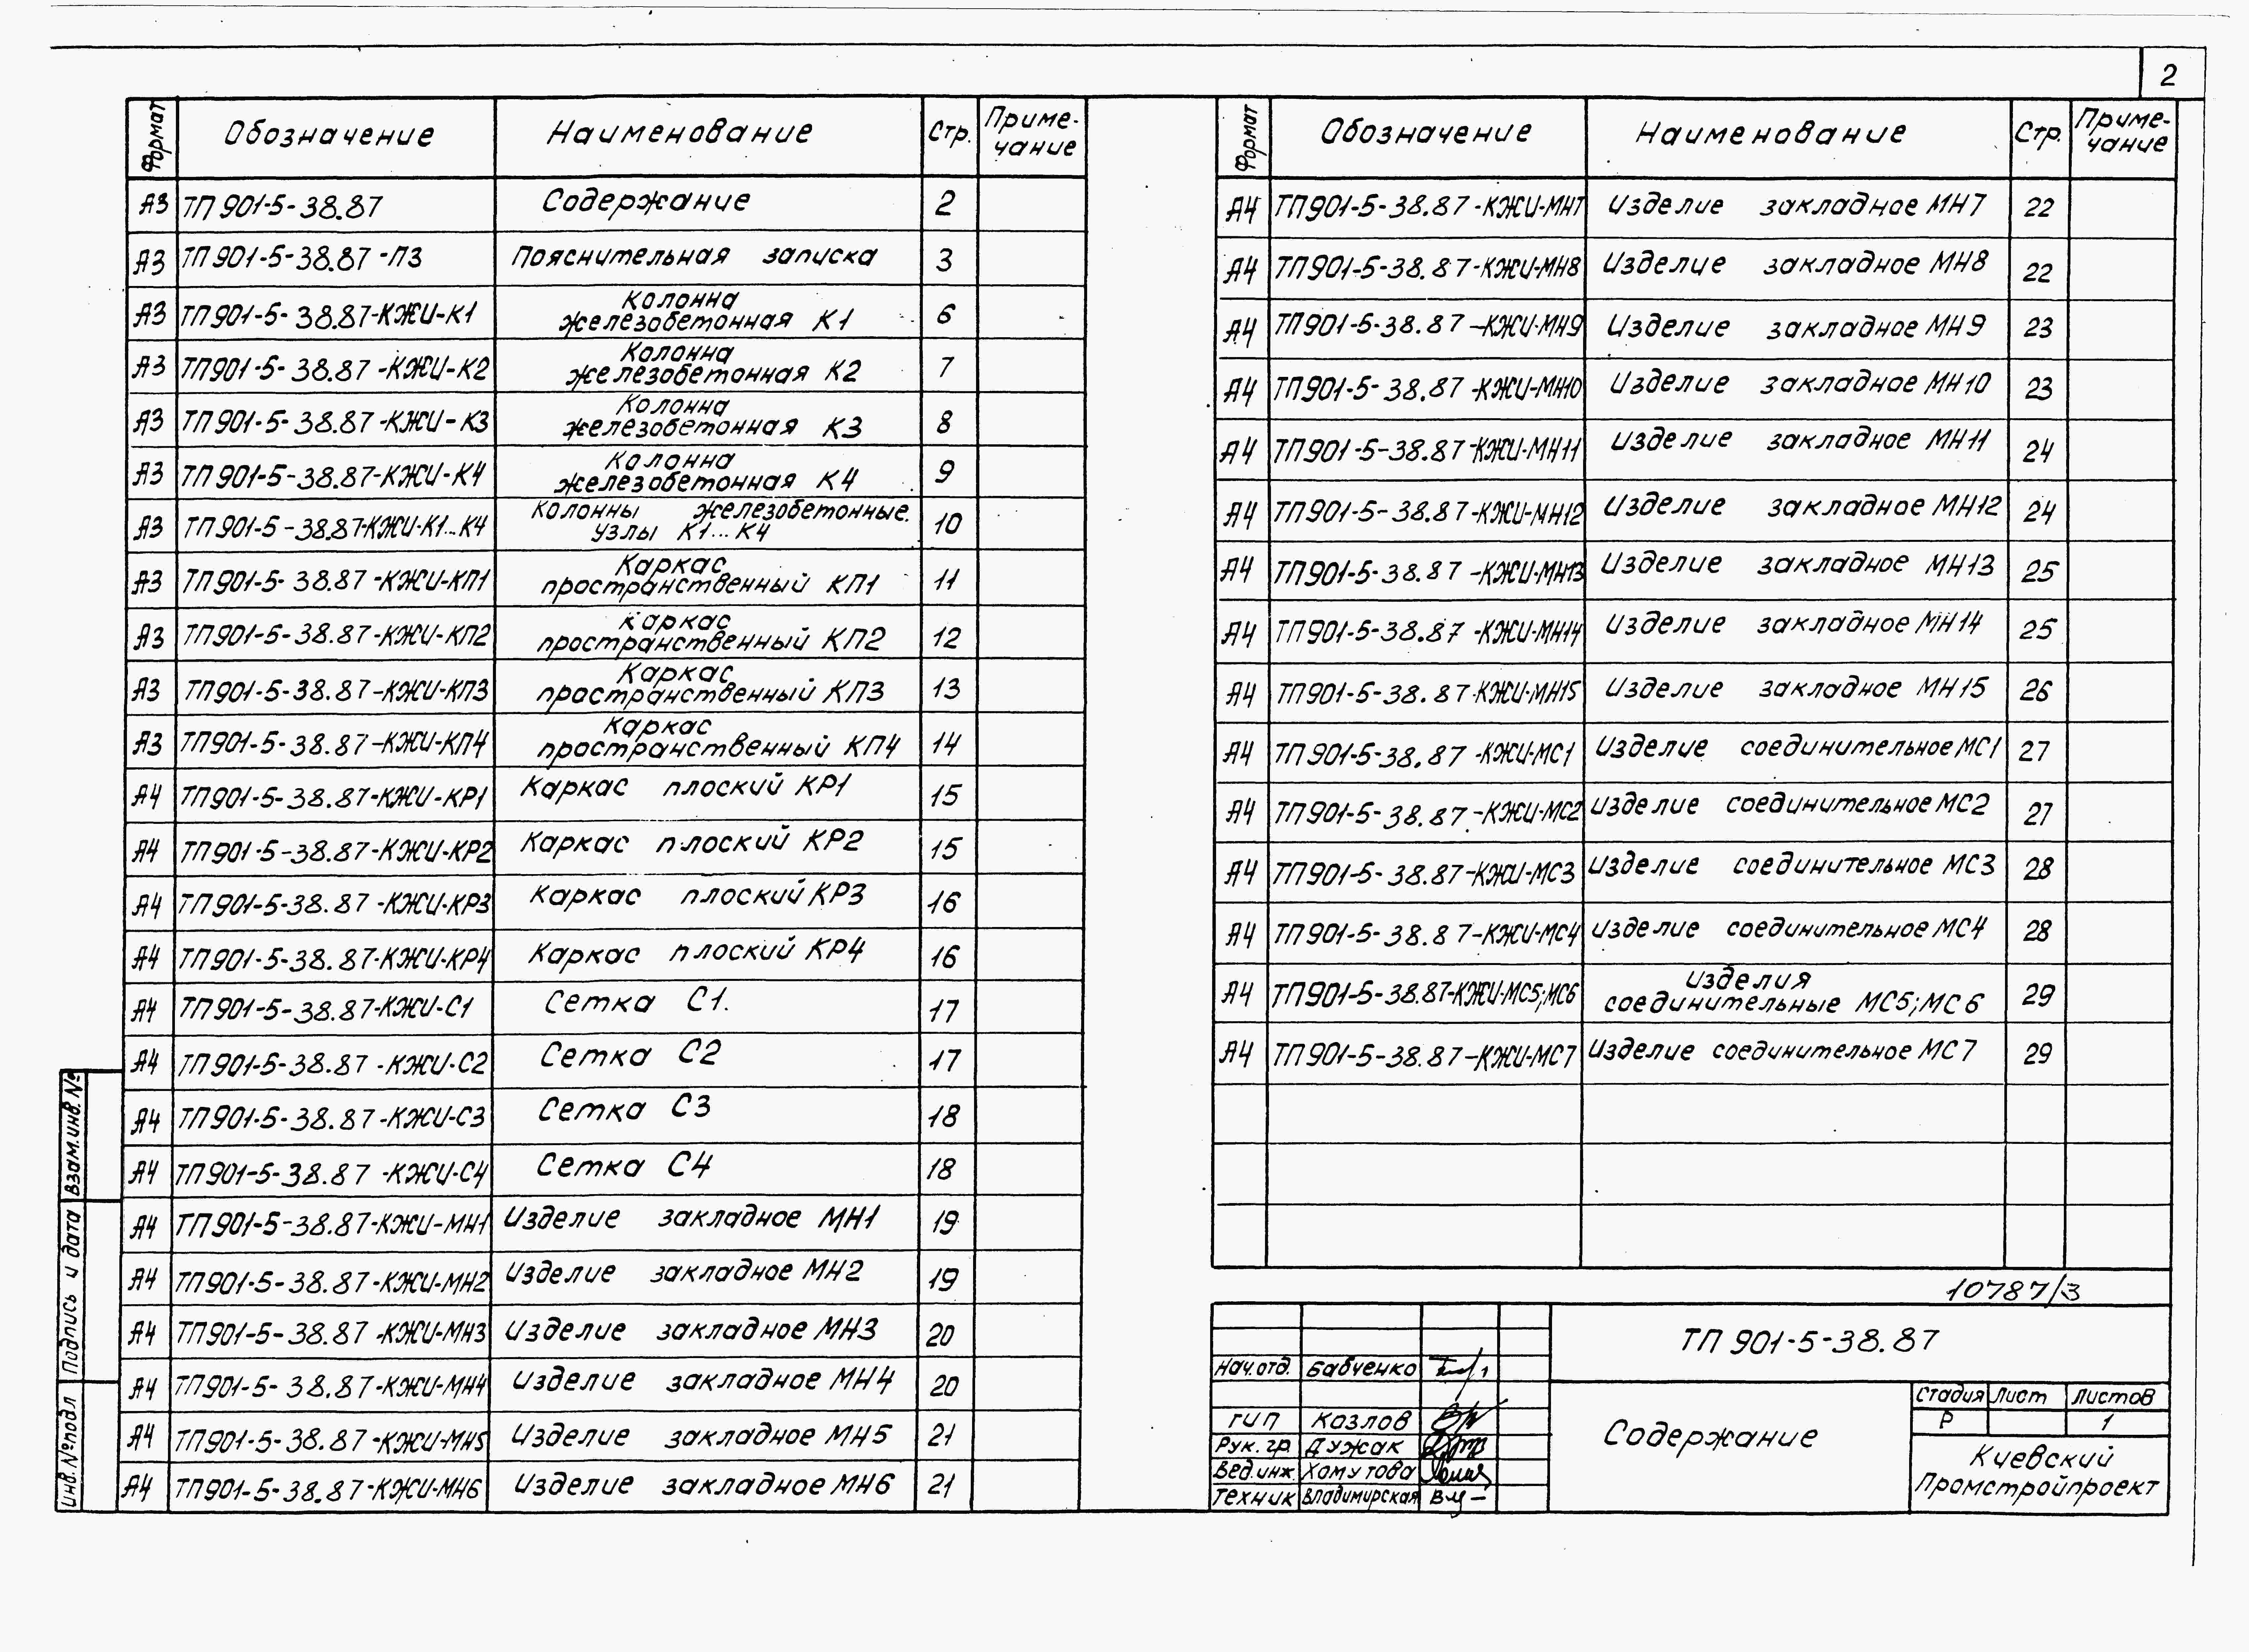 2
Формат Обозначение Наименование Стр. Приме-
чание
А3 ТП 901-5-38.87 Содержание 2
А3 ТП 901-5-38.87-ПЗ Пояснительная записка 3
А3 ТП 901-5-38.87-КЖИ-К1 Колонна
железобетонная К1 6
А3 ТП 901-5-38.87-КЖИ-К2 Колонна
железобетонная К2 7
А3 ТП 901-5-38.87-КЖИ-К3 Колонна
железобетонная К3 8
А3 ТП 901-5-38.87-КЖИ-К4 Колонна
железобетонная К4 9
А3 ТП 901-5-38.87-КЖИ-К1...К4 Колонны железобетонные.
Узлы К1...К4 10
А3 ТП 901-5-38.87-КЖИ-КП1 Каркас
пространственный КП1 11
А3 ТП 901-5-38.87-КЖИ-КП2 Каркас
пространственный КП2 12
А3 ТП 901-5-38.87-КЖИ-КП3 Каркас
пространственный КП3 13
А3 ТП 901-5-38.87-КЖИ-КП4 Каркас
пространственный КП4 14
А4 ТП 901-5-38.87-КЖИ-КР1 Каркас плоский КР1 15
А4 ТП 901-5-38.87-КЖИ-КР2 Каркас плоский КР2 15
А4 ТП 901-5-38.87-КЖИ-КР3 Каркас плоский КР3 16
А4 ТП 901-5-38.87-КЖИ-КР4 Каркас плоский КР4 16
А4 ТП 901-5-38.87-КЖИ-С1 Сетка С1. 17
А4 ТП 901-5-38.87-КЖИ-С2 Сетка С2 17
А4 ТП 901-5-38.87-КЖИ-С3 Сетка С3 18
А4 ТП 901-5-38.87-КЖИ-С4 Сетка С4 18
А4 ТП 901-5-38.87-КЖИ-МН1 Изделие закладное МН1 19
А4 ТП 901-5-38.87-КЖИ-МН2 Изделие закладное МН2 19
А4 ТП 901-5-38.87-КЖИ-МН3 Изделие закладное МН3 20
А4 ТП 901-5-38.87-КЖИ-МН4 Изделие закладное МН4 20
А4 ТП 901-5-38.87-КЖИ-МН5 Изделие закладное МН5 21
А4 ТП 901-5-38.87-КЖИ-МН6 Изделие закладное МН6 21
Формат Обозначение Наименование Стр. Приме-
чание
А4 ТП 901-5-38.87-КЖИ-МН7 Изделие закладное МН7 22
А4 ТП 901-5-38.87-КЖИ-МН8 Изделие закладное МН8 22
А4 ТП 901-5-38.87-КЖИ-МН9 Изделие закладное МН9 23
А4 ТП 901-5-38.87-КЖИ-МН10 Изделие закладное МН10 23
А4 ТП 901-5-38.87-КЖИ-МН11 Изделие закладное МН11 24
А4 ТП 901-5-38.87-КЖИ-МН12 Изделие закладное МН12 24
А4 ТП 901-5-38.87-КЖИ-МН13 Изделие закладное МН13 25
А4 ТП 901-5-38.87-КЖИ-МН14 Изделие закладное МН14 25
А4 ТП 901-5-38.87-КЖИ-МН15 Изделие закладное МН15 26
А4 ТП 901-5-38.87-КЖИ-МС1 Изделие соединительное МС1 27
А4 ТП 901-5-38.87-КЖИ-МС2 Изделие соединительное МС2 27
А4 ТП 901-5-38.87-КЖИ-МС3 Изделие соединительное МС3 28
А4 ТП 901-5-38.87-КЖИ-МС4 Изделие соединительное МС4 28
А4 ТП 901-5-38.87-КЖИ-МС5;МС6 Изделия
соединительные МС5;МС6 29
А4 ТП 901-5-38.87-КЖИ-МС7 Изделие соединительное МС7 29
10787/3
ТП 901-5-38.87
Нач.отд. Бабченко
ГИП Козлов
Рук.гр. Дужак
Вед.инж. Хомутова
Техник Владимирская
Содержание
Стадия Лист Листов
Р 1
Киевский
Промстройпроект
Взам.инв.№
Подпись и дата
Инв.№подл